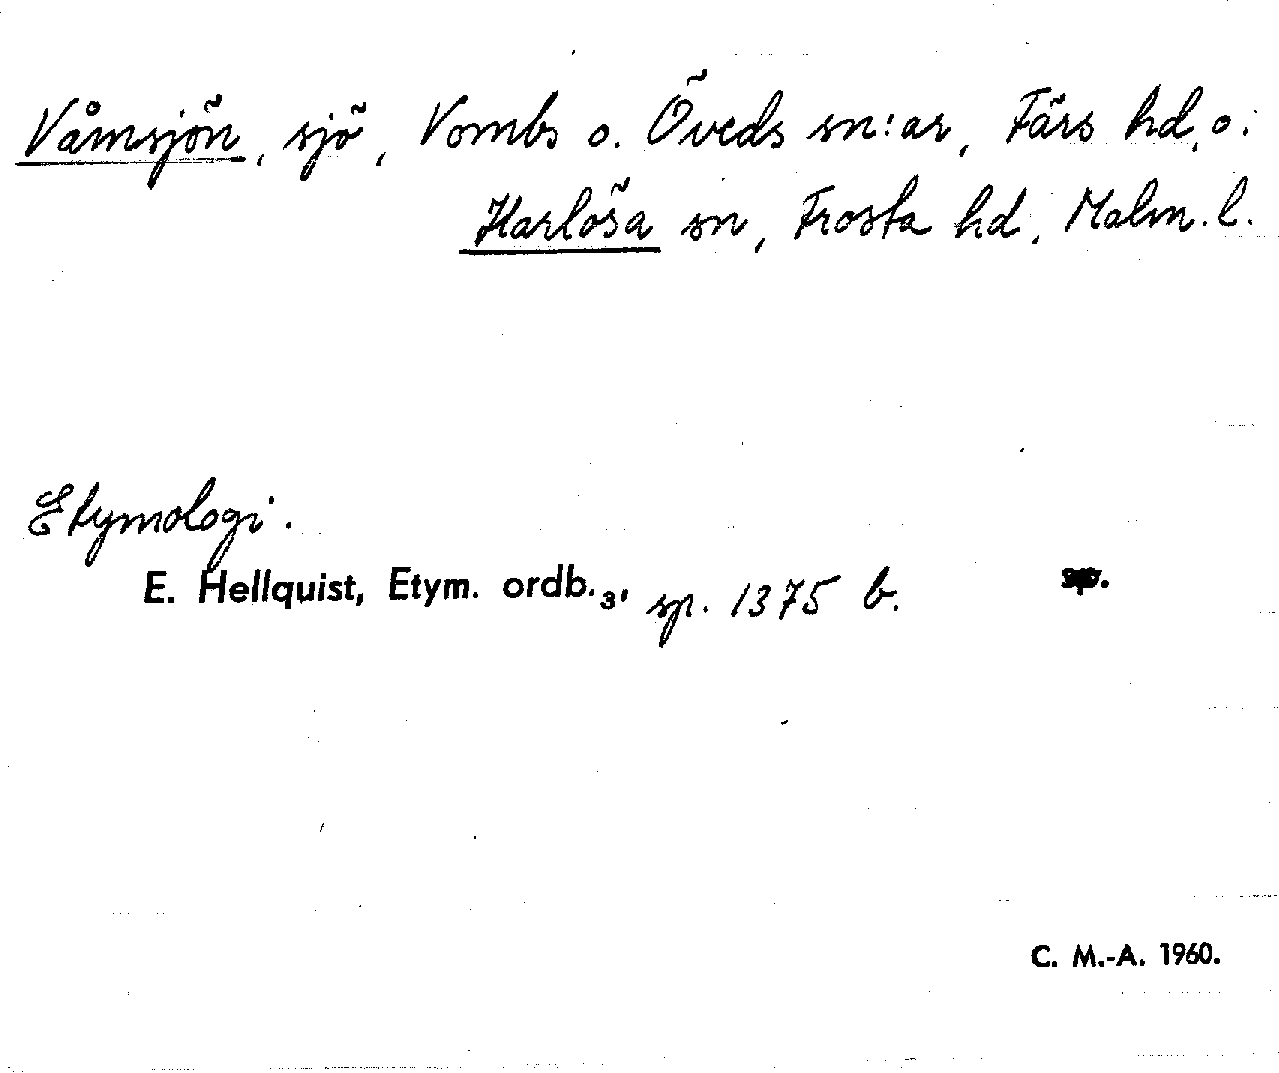 Våmsjön, sjö, Vombs o. Öveds sn:ar, Färs hd, o.
Harlösa sn, Frosta hd, Malm. l.
Etymologi.
E. Hellquist, Etym. ordb.₃, sp. 1375 b.
C. M.-A. 1960.